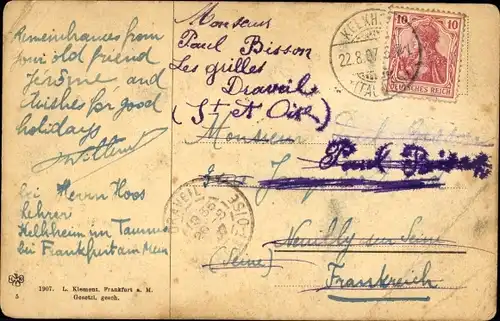 Remembrances from
your old friend
Jérôme and
Wishes for good
holidays
bei Herrn Hoos
Lehrer
Kelkheim im Taunus
bei Frankfurt am Main
5
1907. L. Klement, Frankfurt a. M.
Gesetzl. gesch.
Monsieur
Paul Bisson
Les grilles
Draveil
(S. et Oise)
Monsieur
Paul
Neuilly sur Seine
(Seine)
Frankreich
22.8.07
(TAUNUS)
10 10
DEUTSCHES REICH
DRAVEIL
OISE